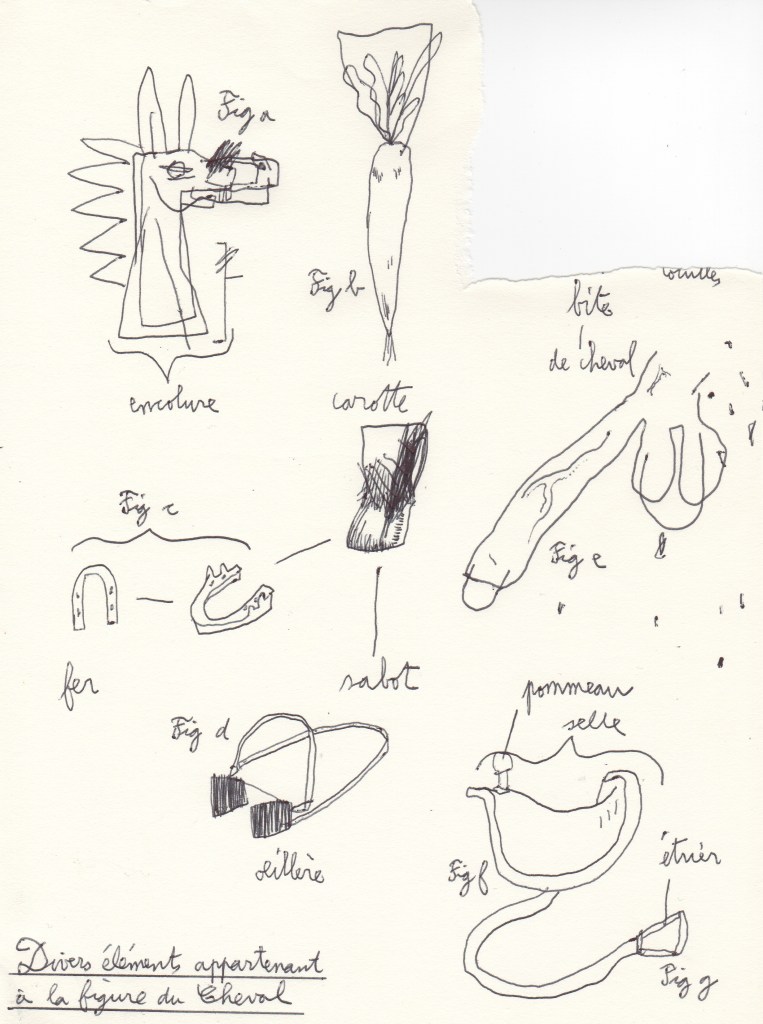 Fig a
Fig b
bite
de cheval
encolure
carotte
Fig c
Fig e
fer
sabot
Fig d
pommeau
selle
œillère
Fig f
étrier
Fig g
Divers éléments appartenant
à la figure du Cheval